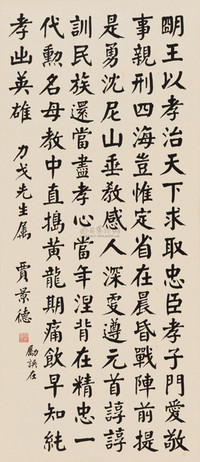 明王以孝治天下求取忠臣孝子門愛敬
事親刑四海豈惟定省在晨昏戰陣前提
是勇沈尼山垂教感人深雯遵元首諄諄
訓民族還當盡孝心當年涅背在精忠一
代勲名母教中直搗黃龍期痛飲早知純
孝出英雄
力戈先生属
賈景德
勵誤在